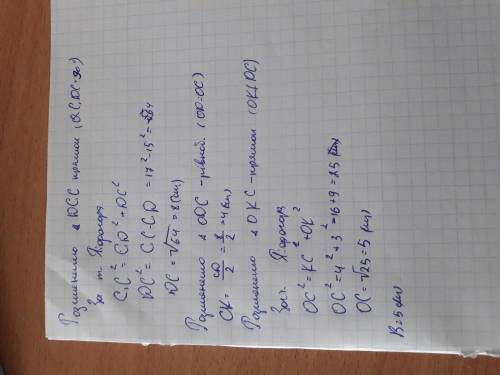 Розглянемо Δ DCC прямок (
За т. Піфагора
CC² = CD² + DC²
DC² = CC - CD = 17² - 15² = 64
DC = √64 = 8 (см)
Розглянемо Δ ODC - рівноб. (OD=OC)
CK = CD/2 = 8/2 = 4 (см)
Розглянемо Δ OKC - прямок (OK⊥DC)
За т. Піфагора
OC² = KC² + OK²
OC² = 4² + 3² = 16 + 9 = 25
OC = √25 = 5 (см)
R = 5 (см)